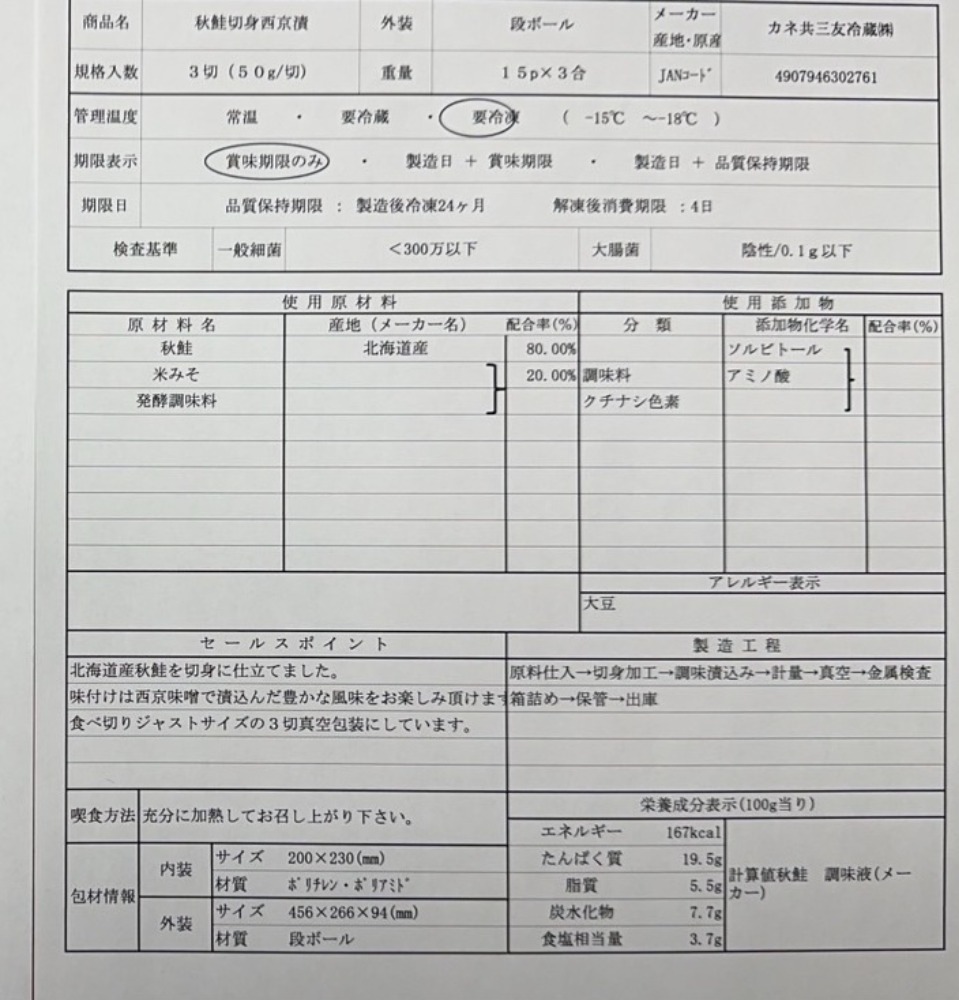 商品名 秋鮭切身西京漬 外装 段ボール メーカー 産地・原産 カネ共三友冷蔵㈱
規格入数 3切(50g/切) 重量 15p×3合 JANコード 4907946302761
管理温度 常温 ・ 要冷蔵 ・ 要冷凍 ( -15℃ ～-18℃ )
期限表示 賞味期限のみ ・ 製造日 + 賞味期限 ・ 製造日 + 品質保持期限
期限日 品質保持期限 : 製造後冷凍24ヶ月 解凍後消費期限 :4日
検査基準 一般細菌 <300万以下 大腸菌 陰性/0.1g以下
使用原材料 使用添加物
原材料名 産地(メーカー名) 配合率(%) 分類 添加物化学名 配合率(%)
秋鮭 北海道産 80.00% ソルビトール
米みそ 20.00% 調味料 アミノ酸
発酵調味料 クチナシ色素
アレルギー表示
大豆
セールスポイント 製造工程
北海道産秋鮭を切身に仕立てました。 原料仕入→切身加工→調味漬込み→計量→真空→金属検査
味付けは西京味噌で漬込んだ豊かな風味をお楽しみ頂けます 箱詰め→保管→出庫
食べ切りジャストサイズの3切真空包装にしています。
喫食方法 充分に加熱してお召し上がり下さい。 栄養成分表示(100g当り)
エネルギー 167kcal
包材情報 内装 サイズ 200×230(㎜) たんぱく質 19.5g 計算値秋鮭 調味液(メーカー)
材質 ポリチレン・ポリアミド 脂質 5.5g
外装 サイズ 456×266×94(㎜) 炭水化物 7.7g
材質 段ボール 食塩相当量 3.7g